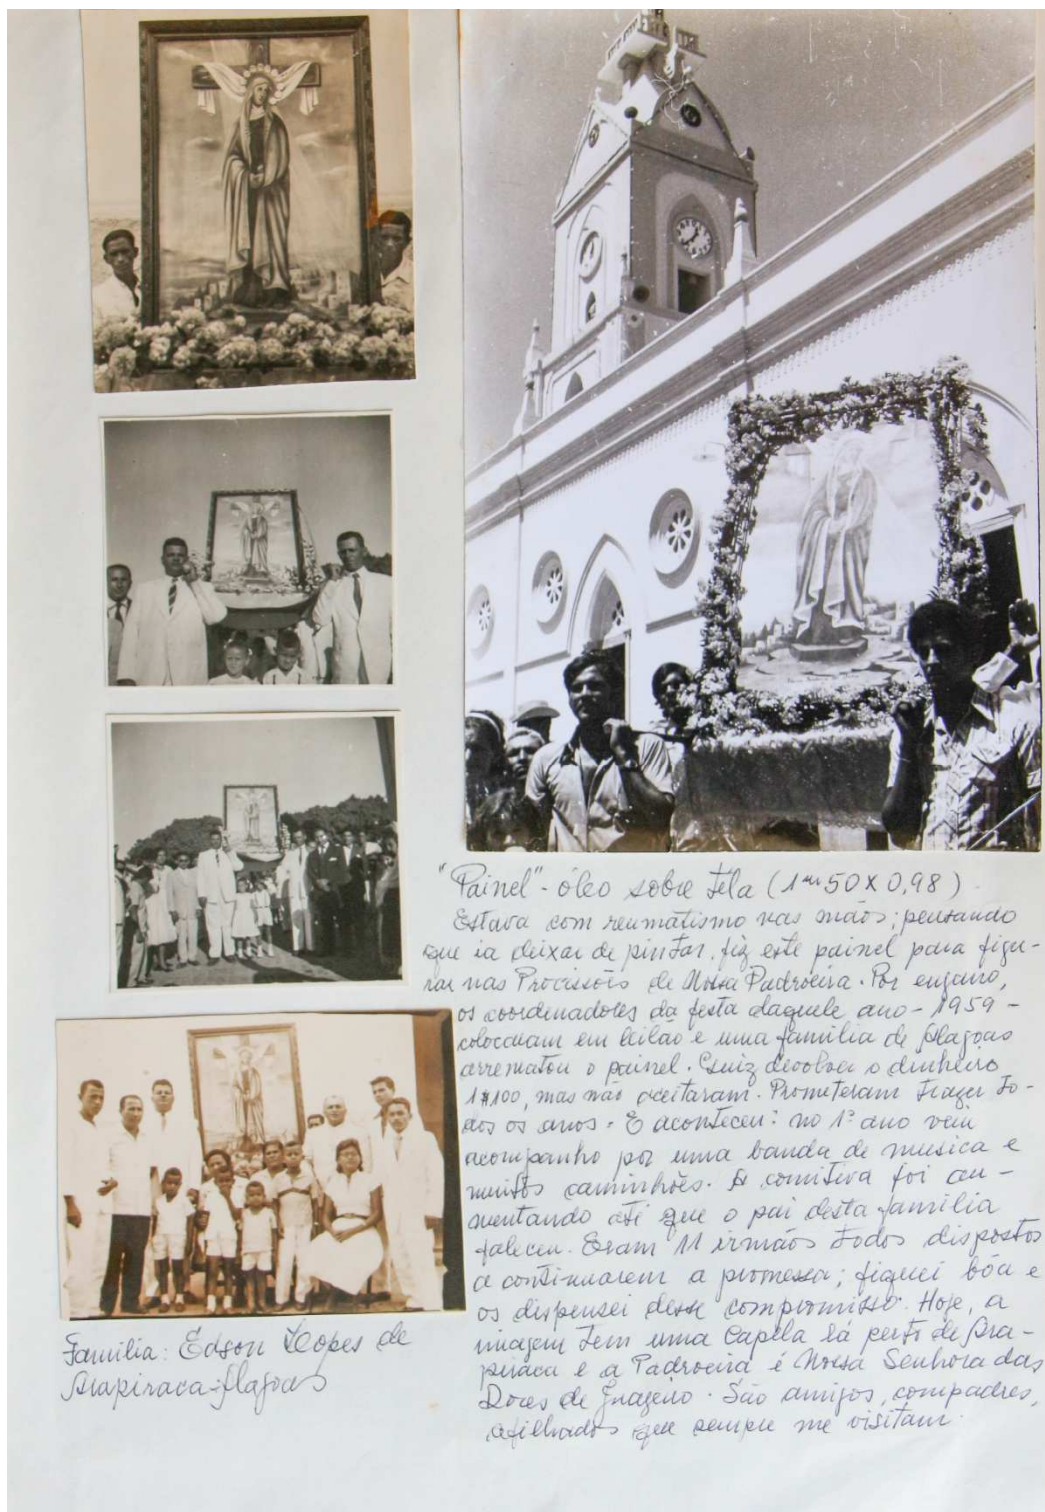 "Painel" - óleo sobre tela (1m50 X 0,98)
Estava com reumatismo nas mãos; pensando
que ia deixar de pintar, fiz este painel para figu-
rar nas Procissões de Nossa Padroeira. Por engano,
os coordenadores da festa daquele ano - 1959 -
colocaram em leilão e uma família de Alagoas
arrematou o painel. Quiz devolver o dinheiro
1$100, mas não aceitaram. Prometeram trazer to-
dos os anos. E aconteceu: no 1º ano veio
acompanho por uma banda de musica e
muitos caminhões. A comitiva foi au-
mentando até que o pai desta família
faleceu. Eram 11 irmãos todos dispostos
a continuarem a promessa; fiquei bôa e
os dispensei desse compromisso. Hoje, a
imagem tem uma Capela lá perto de Ara-
piraca e a Padroeira é Nossa Senhora das
Dores de Juazeiro. São amigos, compadres,
afilhados que sempre me visitam.
Familia: Edson Lopes de
Arapiraca-Alagoas